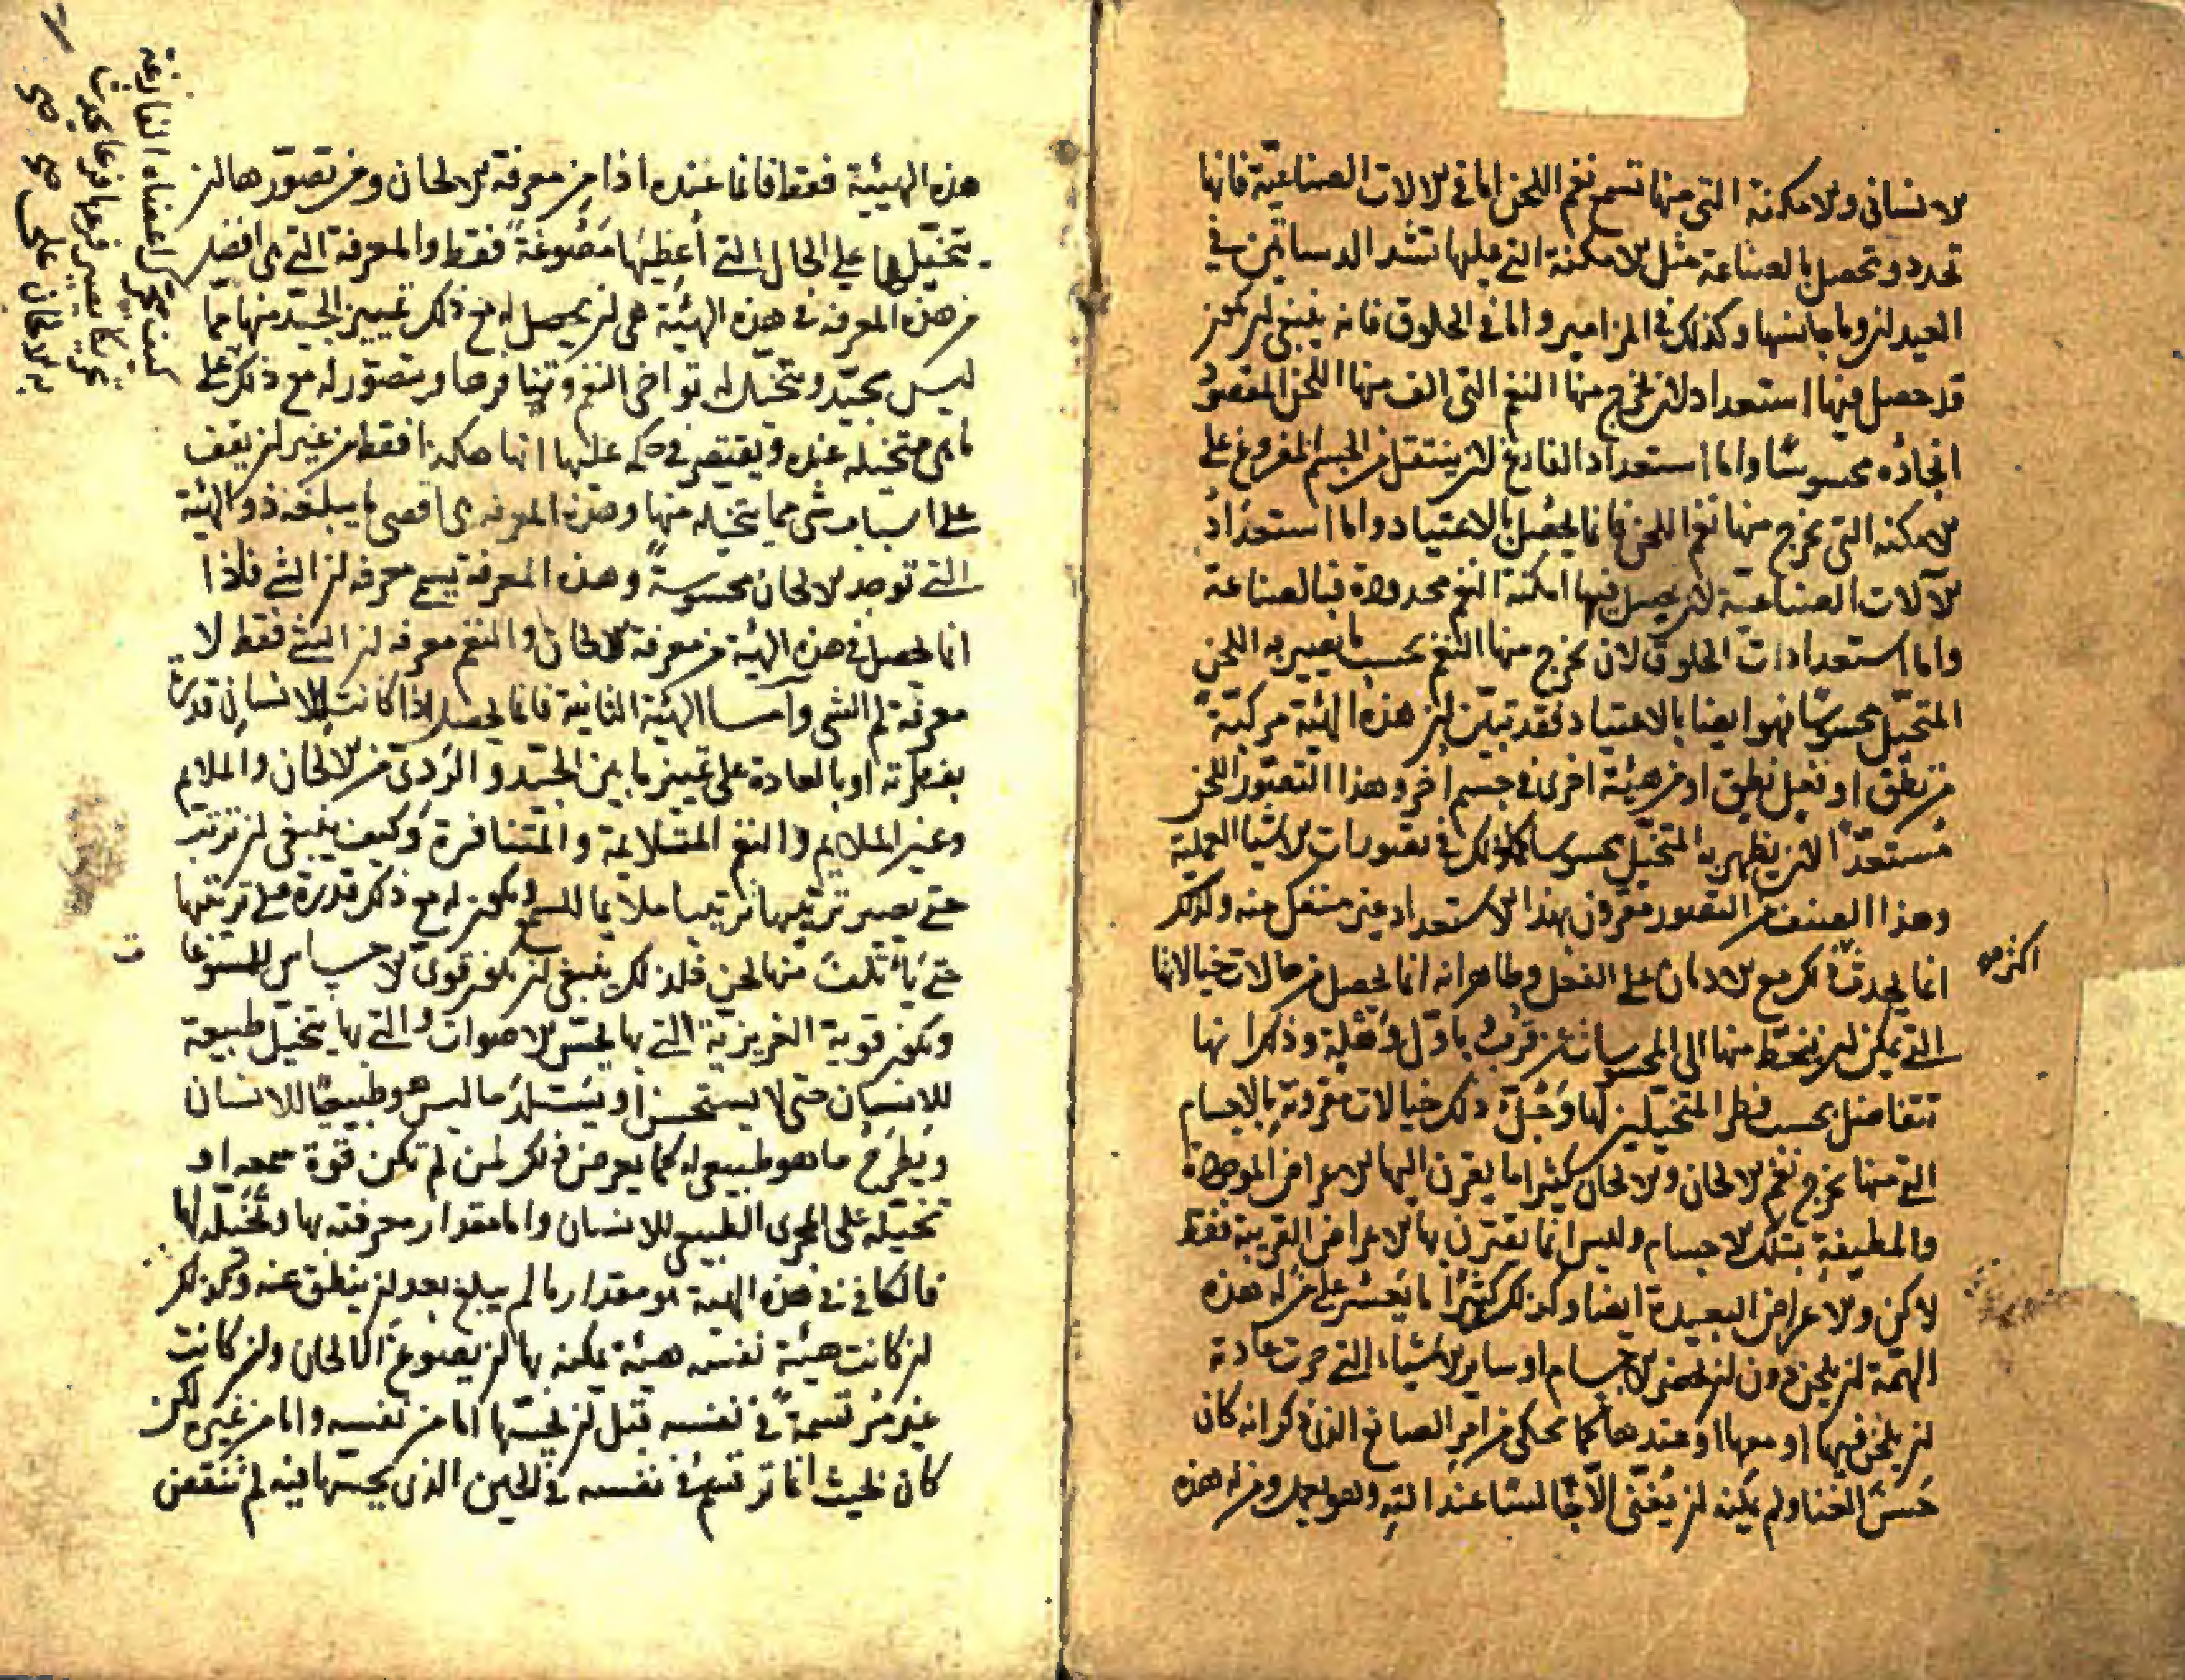 الانسانى والامكنة التى منها تسمع نغم اللحن اما فى الالات الصناعية فانها
تحدد وتحصل بالصناعة مثل الامكنة التى عليها تشد الدساتين فى
العيدان وما جانسها وكذلك فى المزامير واما فى الحلوق فانه ينبغى ان تكون
قد حصل فيها استعداد لان يخرج منها النغم التى الف منها اللحن المقصود
اتخاذه محسوسا واما استعداد القارع لان ينتقل من الجسم المقروع على
الامكنة التى تخرج منها نغم اللحن فانما يحصل بالاعتياد واما استعداد
الآلات الصناعية لان يحصل فيها امكنة النغم محدودة فبالصناعة
واما استعدادات الحلوق لان يخرج منها النغم بحسب ما يصير به اللحن
المتخيل محسوسا فهو ايضا بالاعتياد فقد تبين ان هذه الهيئة مركبة
من نطق او فعل نطق او من هيئة اخرى فى جسم اخر وهذا التصور اللحن
مستعدا لان يظهر به المتخيل محسوسا وكذلك فى تصورات الاشيا العملية
وهذا الصنف من التصور مقرون بهذا الاستعداد غير منفك منه وكذلك
اكثر من
انما يحدث ذلك مع الادمان على الفعل وظاهر انه انما يحصل من حالات خيالاتنا
التى يمكن ان ينحط منها الى المحسوسات عن قرب باول وهلة وذكر انها
تتفاضل بحسب فطر المتخيلين لها وجل ذلك خيالات مقرونة بالاجسام
التى منها تخرج نغم الالحان والالحان كثيرا ما يقرن اليها الاعراض الموجودة
والمطيفة بتلك الاجسام وليس انما يقترن بها الاعراض القريبة فقط
لاكن والاعراض البعيدة ايضا وكذلك كثيرا ما يعسر على من له هذه
الهيئة ان يلحن دون ان تحضر الاجسام او ساير الاشياء التى جرت عادته
ان يلحن فيها او معها او عندها كما يحكى من امر الصانع الذى ذكر انه كان
حسن الغنا ولم يمكنه ان يغنى الا جالسا عند وهو يعمل ومن له هذه
هذه الهيئة فقط فانما عنده اذا من معرفة الالحان ومن تصورها ان
يتخيلها على الحال التى أعطيها مصوغة فقط والمعرفة التى هى افضل
من هذه المعرفة فى هذه الهيئة هى ان يحصل له مع ذلك تمييز الجيد منها مما
ليس بجيد ويتخيل له تواخى النغم وتنافرها ويتصور له مع ذلك على
ما هى متخيلة عنده ويقتصر فى حكمه عليها انها هكذا فقط من غير ان يقف
على اسباب شى مما يتخيله منها وهذه المعرفة هى اقصى ما يبلغه ذو الهيئة
التى توجد الالحان محسوسة وهذه المعرفة تسمى معرفة ان الشى فاذا
انما يحصل فى هذه الهيئة من معرفة الالحان والنغم معرفة ان الشى فقط لا
معرفة لم الشى واما الهيئة الثانية فانما يحصل اذا كانت للانسان قدرة
بفطرته او بالعادة على تمييز ما بين الجيد والردى من الالحان والملايم
وغير الملايم والنغم المتلايمة والمتنافرة وكيف ينبغى ان ترتب
حتى يصير ترتيبها ترتيبا ملايما للسمع وتكون له مع ذلك قدرة على ترتيبها
حتى يأتلف منها لحن فلذلك ينبغى ان تكون قوى الاحساس للمسموعا
ت
وتكون قوية الغريزية التى بها يحس الاصوات والتى بها يتخيل طبيعية
للانسان حتى لا يستحسن او يستلذ ما ليس هو طبيعيا للانسان
ويطرح ما هو طبيعى له كما يعرض ذلك لمن لم تكن قوة سمعه او
تخيله على المجرى الطبيعى للانسان واما مقدار معرفته بها وتخيله لها
فالكافى فى هذه الهيئة هو مقدار ما لم يبلغ بعد ان ينطق عنه وكذلك
ان كانت هيئة نفسه هيئة يمكنه بها ان يصوغ الالحان وان كانت
غير مرتسمة فى نفسه قبل ان يحسها اما من نفسه واما من غيره لكن
كان بحيث انما ترتسم فى نفسه فى الحين الذى يحسها فيه لم تنقص